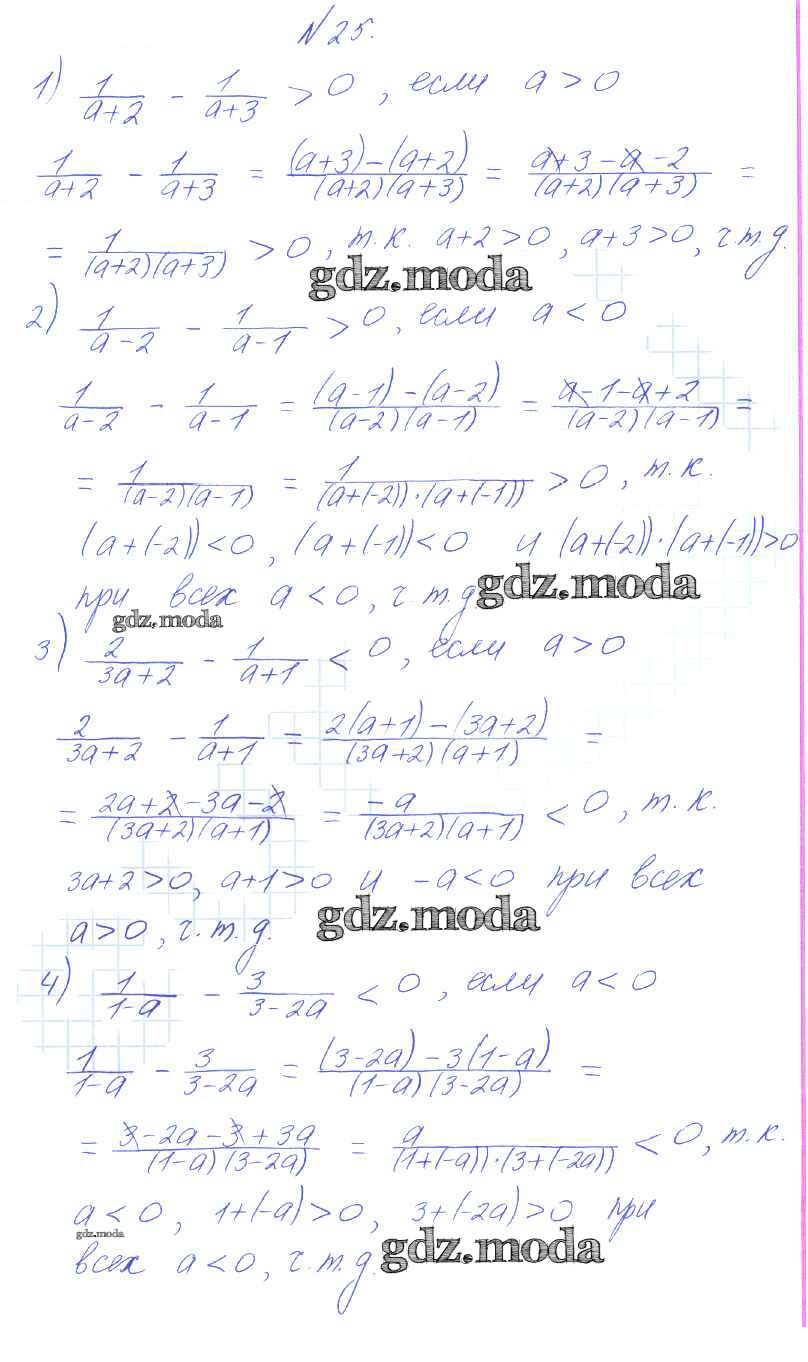 №25.
1) 1/(a+2) - 1/(a+3) > 0, если a > 0
1/(a+2) - 1/(a+3) = ((a+3)-(a+2))/((a+2)(a+3)) = (a+3-a-2)/((a+2)(a+3)) =
= 1/((a+2)(a+3)) > 0, т.к. a+2>0, a+3>0, ч.т.д.
gdz.moda
2) 1/(a-2) - 1/(a-1) > 0, если a < 0
1/(a-2) - 1/(a-1) = ((a-1)-(a-2))/((a-2)(a-1)) = (a-1-a+2)/((a-2)(a-1)) =
= 1/((a-2)(a-1)) = 1/((a+(-2))·(a+(-1))) > 0, т.к.
(a+(-2))<0, (a+(-1))<0 и (a+(-2))·(a+(-1))>0
при всех a<0, ч.т.д
gdz.moda
gdz.moda
3) 2/(3a+2) - 1/(a+1) < 0, если a > 0
2/(3a+2) - 1/(a+1) = (2(a+1)-(3a+2))/((3a+2)(a+1)) =
= (2a+2-3a-2)/((3a+2)(a+1)) = -a/((3a+2)(a+1)) < 0, т.к.
3a+2>0, a+1>0 и -a<0 при всех
a>0, ч.т.д.
gdz.moda
4) 1/(1-a) - 3/(3-2a) < 0, если a < 0
1/(1-a) - 3/(3-2a) = ((3-2a)-3(1-a))/((1-a)(3-2a)) =
= (3-2a-3+3a)/((1-a)(3-2a)) = a/((1+(-a))·(3+(-2a))) < 0, т.к.
a<0, 1+(-a)>0, 3+(-2a)>0 при
gdz.moda
всех a<0, ч.т.д.
gdz.moda